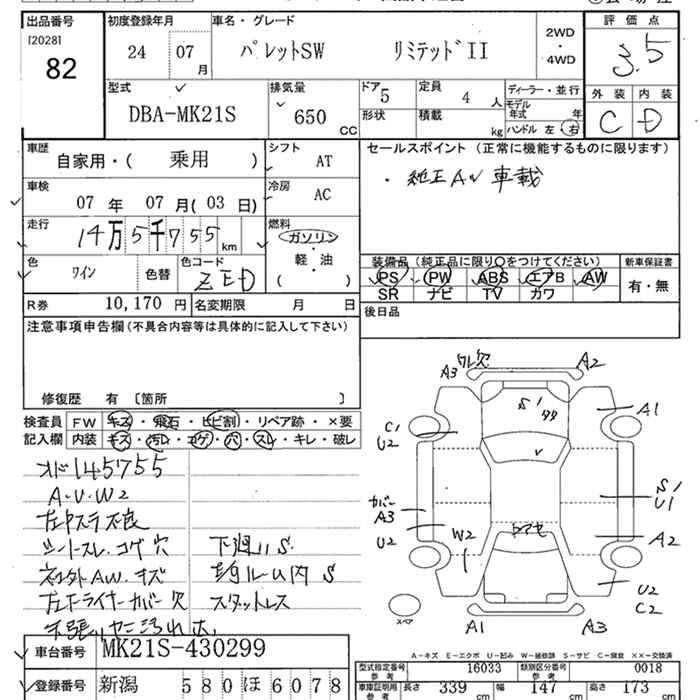 出品番号 初度登録年月 車名・グレード 評価点
[2028]
82
24 07月
パレットSW リミテッドII
2WD・4WD
3.5
型式 排気量 ドア 定員 ディーラー・並行
DBA-MK21S 650 CC 5 4 人
形状 積載 kg
モデル年式 年
ハンドル 左・右
外装 内装
C D
車歴 シフト
自家用・( 乗用 ) AT
車検 冷房
07 年 07 月 (03 日) AC
走行 燃料
14万5千755 km
ガソリン・軽・油 ( )
色 色替 色コード
ワイン ZED
R券 10,170 円 名変期限 月 日
セールスポイント (正常に機能するものに限ります)
・純正AW 車載
装備品 (純正品に限り〇をつけてください) 新車保証書
PS PW ABS エアB AW 有・無
SR ナビ TV カワ
後日品
注意事項申告欄(不具合内容等は具体的に記入して下さい)
修復歴 有 〔箇所 〕
検査員記入欄
FW キズ・飛石・ヒビ割・リペア跡・×要
内装 キズ・汚レ・コゲ・穴・スレ・キレ・破レ
オド145755
A・U・W2
左中ステラ不良
シートスレ.コゲ穴 下廻リS
社外AW.キズ 室内ルーム内S
左下ライナーカバー欠 スタットレス
天張リヤニ汚れ大
A3 ワレ欠 A2
S1
タタ
A1
C1
U2
カバー
A3
U2
S1
U1
A2
W2
U2
C2
スペア
A1 A3
A-キズ E-エクボ U-凹み W-補修跡 S-サビ C-腐食 XX-交換済
車台番号 MK21S-430299
登録番号 新潟 580ほ6078
型式指定番号 参考 16033 類別区分番号 参考 0018
車庫証明用 参考 長さ 339 cm 幅 147 cm 高さ 173 cm